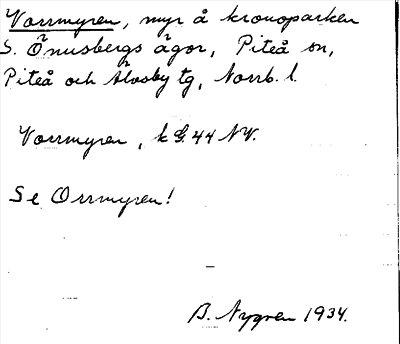 Vorrmyren, myr å kronoparken
S. Önusbergs ägor, Piteå sn,
Piteå och Älvsby tg, Norrb. l.
Vorrmyren, k G. 44 NV.
Se Orrmyren!
B. Nygren 1934.